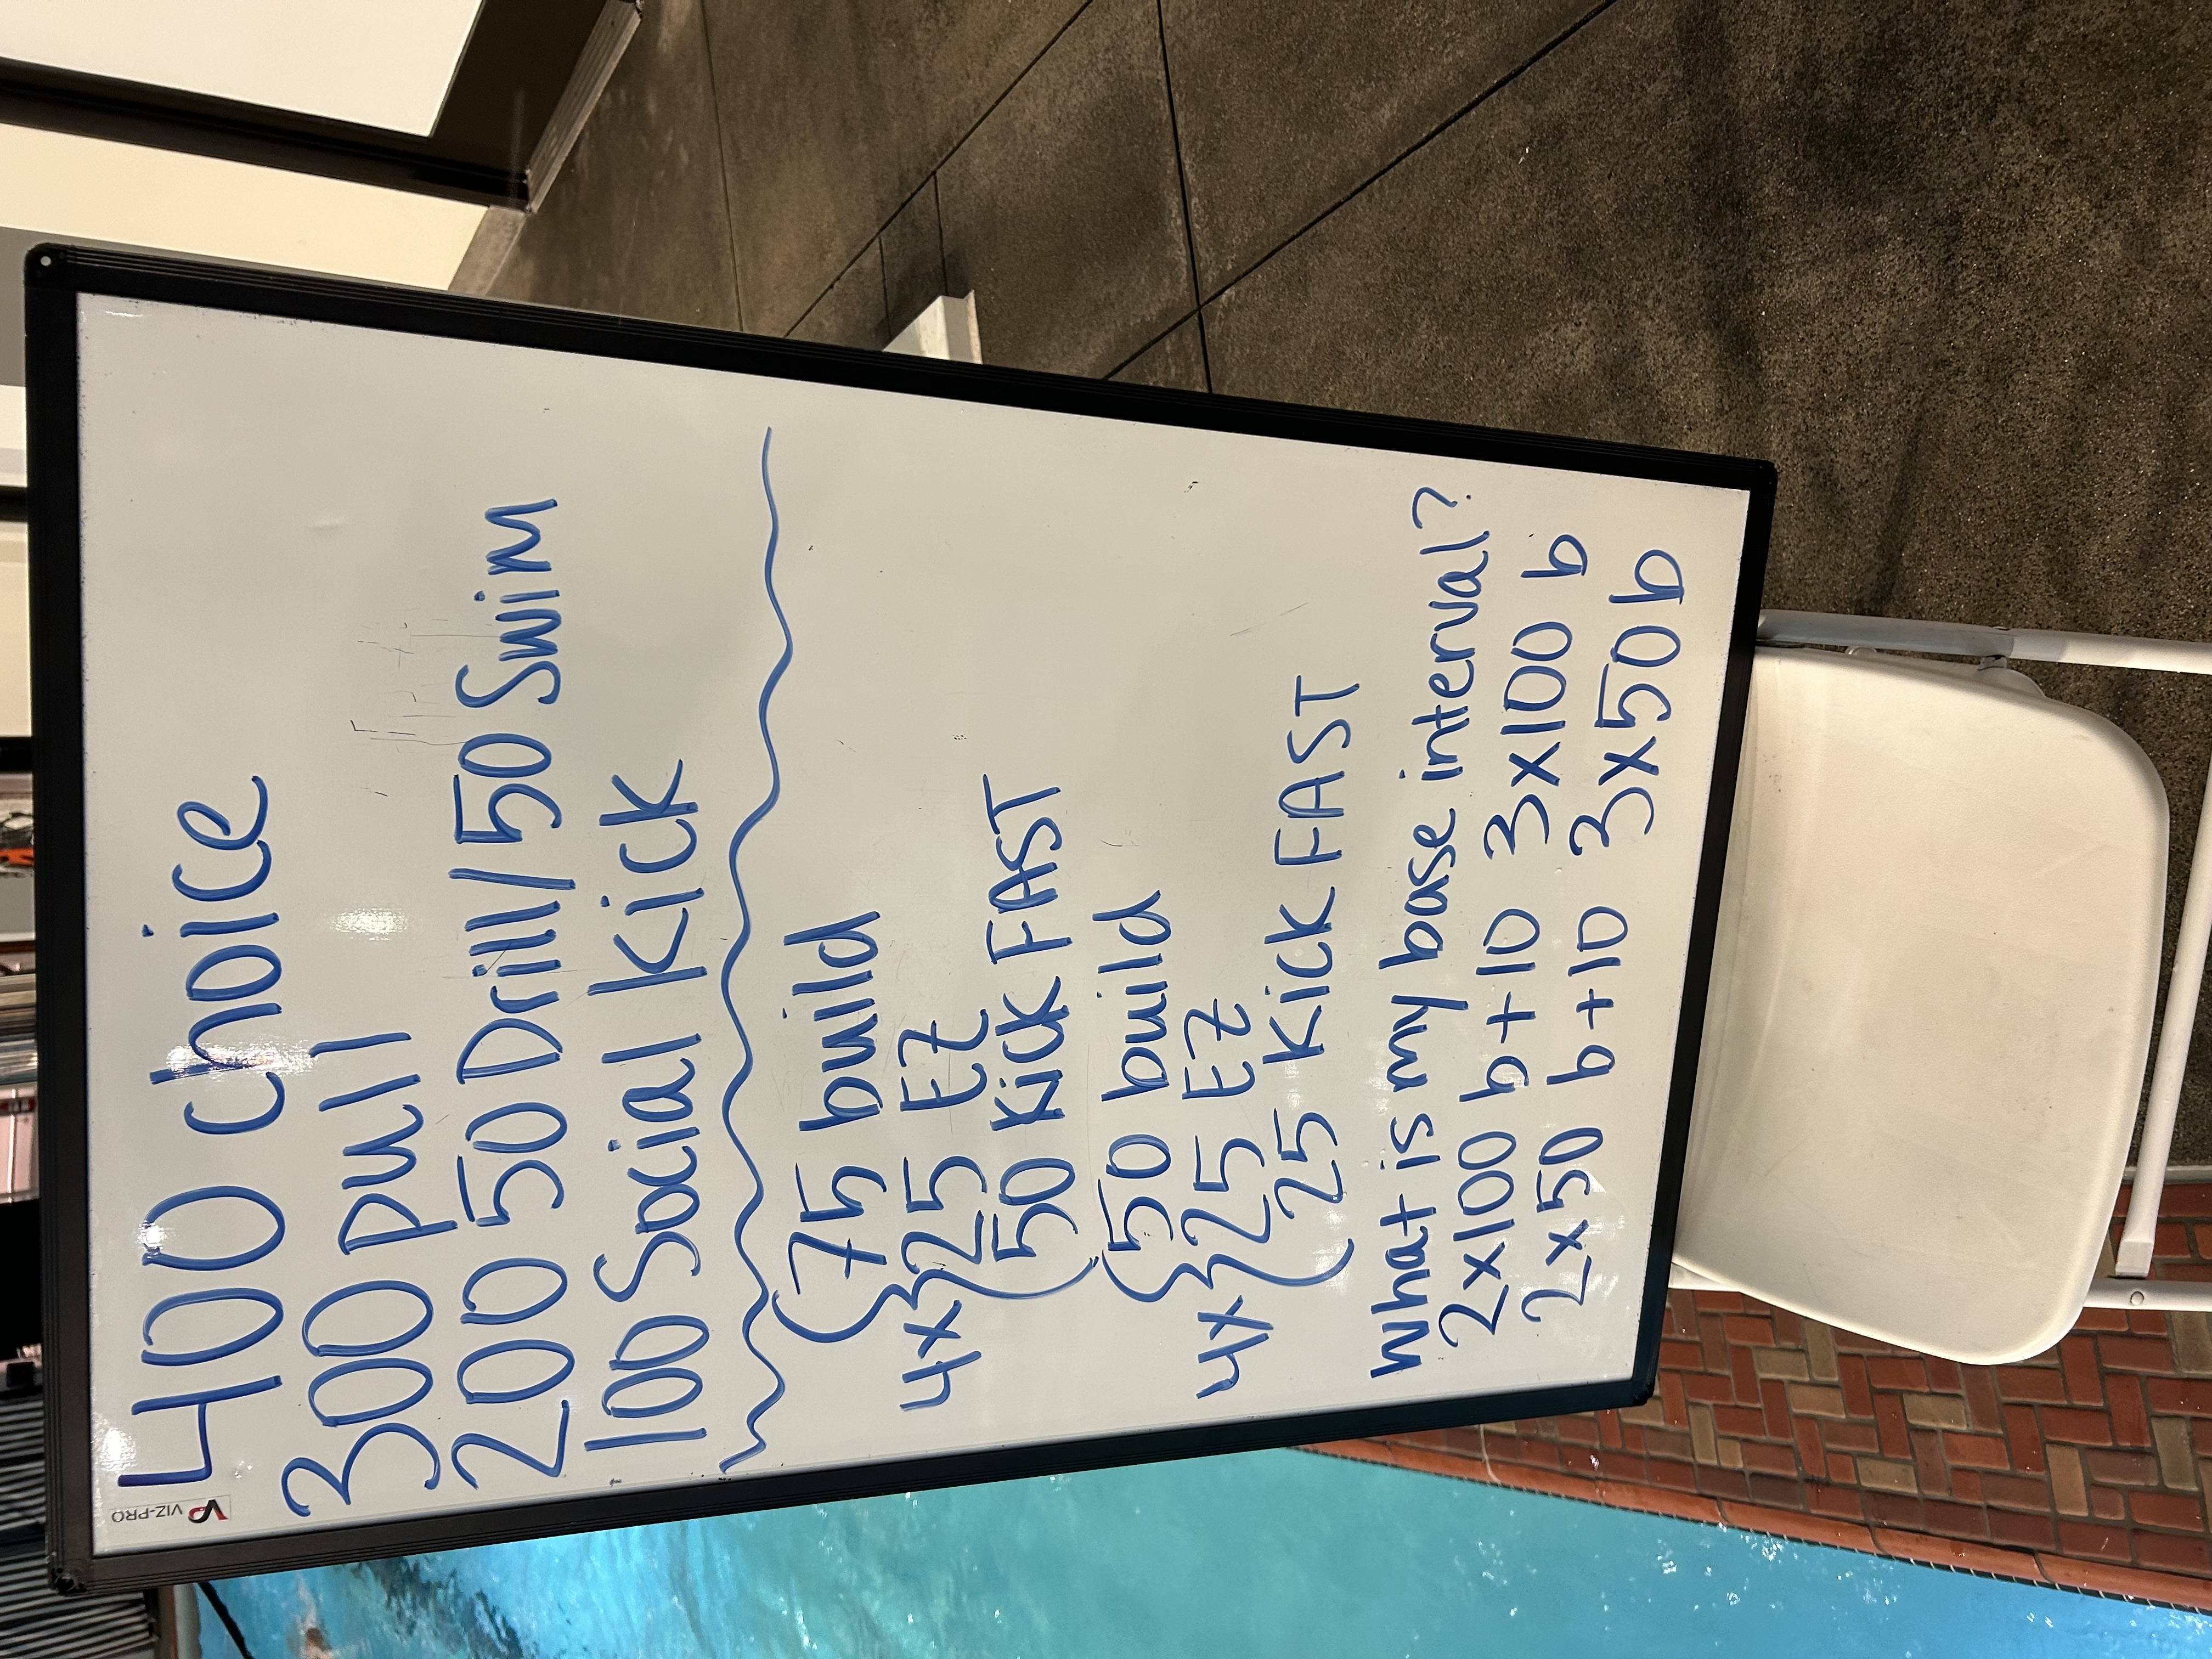 VIZ-PRO
400 choice
300 pull
200 50 Drill/50 Swim
100 Social Kick
75 build
4x 25 EZ
50 Kick FAST
50 build
4x 25 EZ
25 Kick FAST
What is my base interval?
2x100 b+10 3x100 b
2x50 b+10 3x50 b